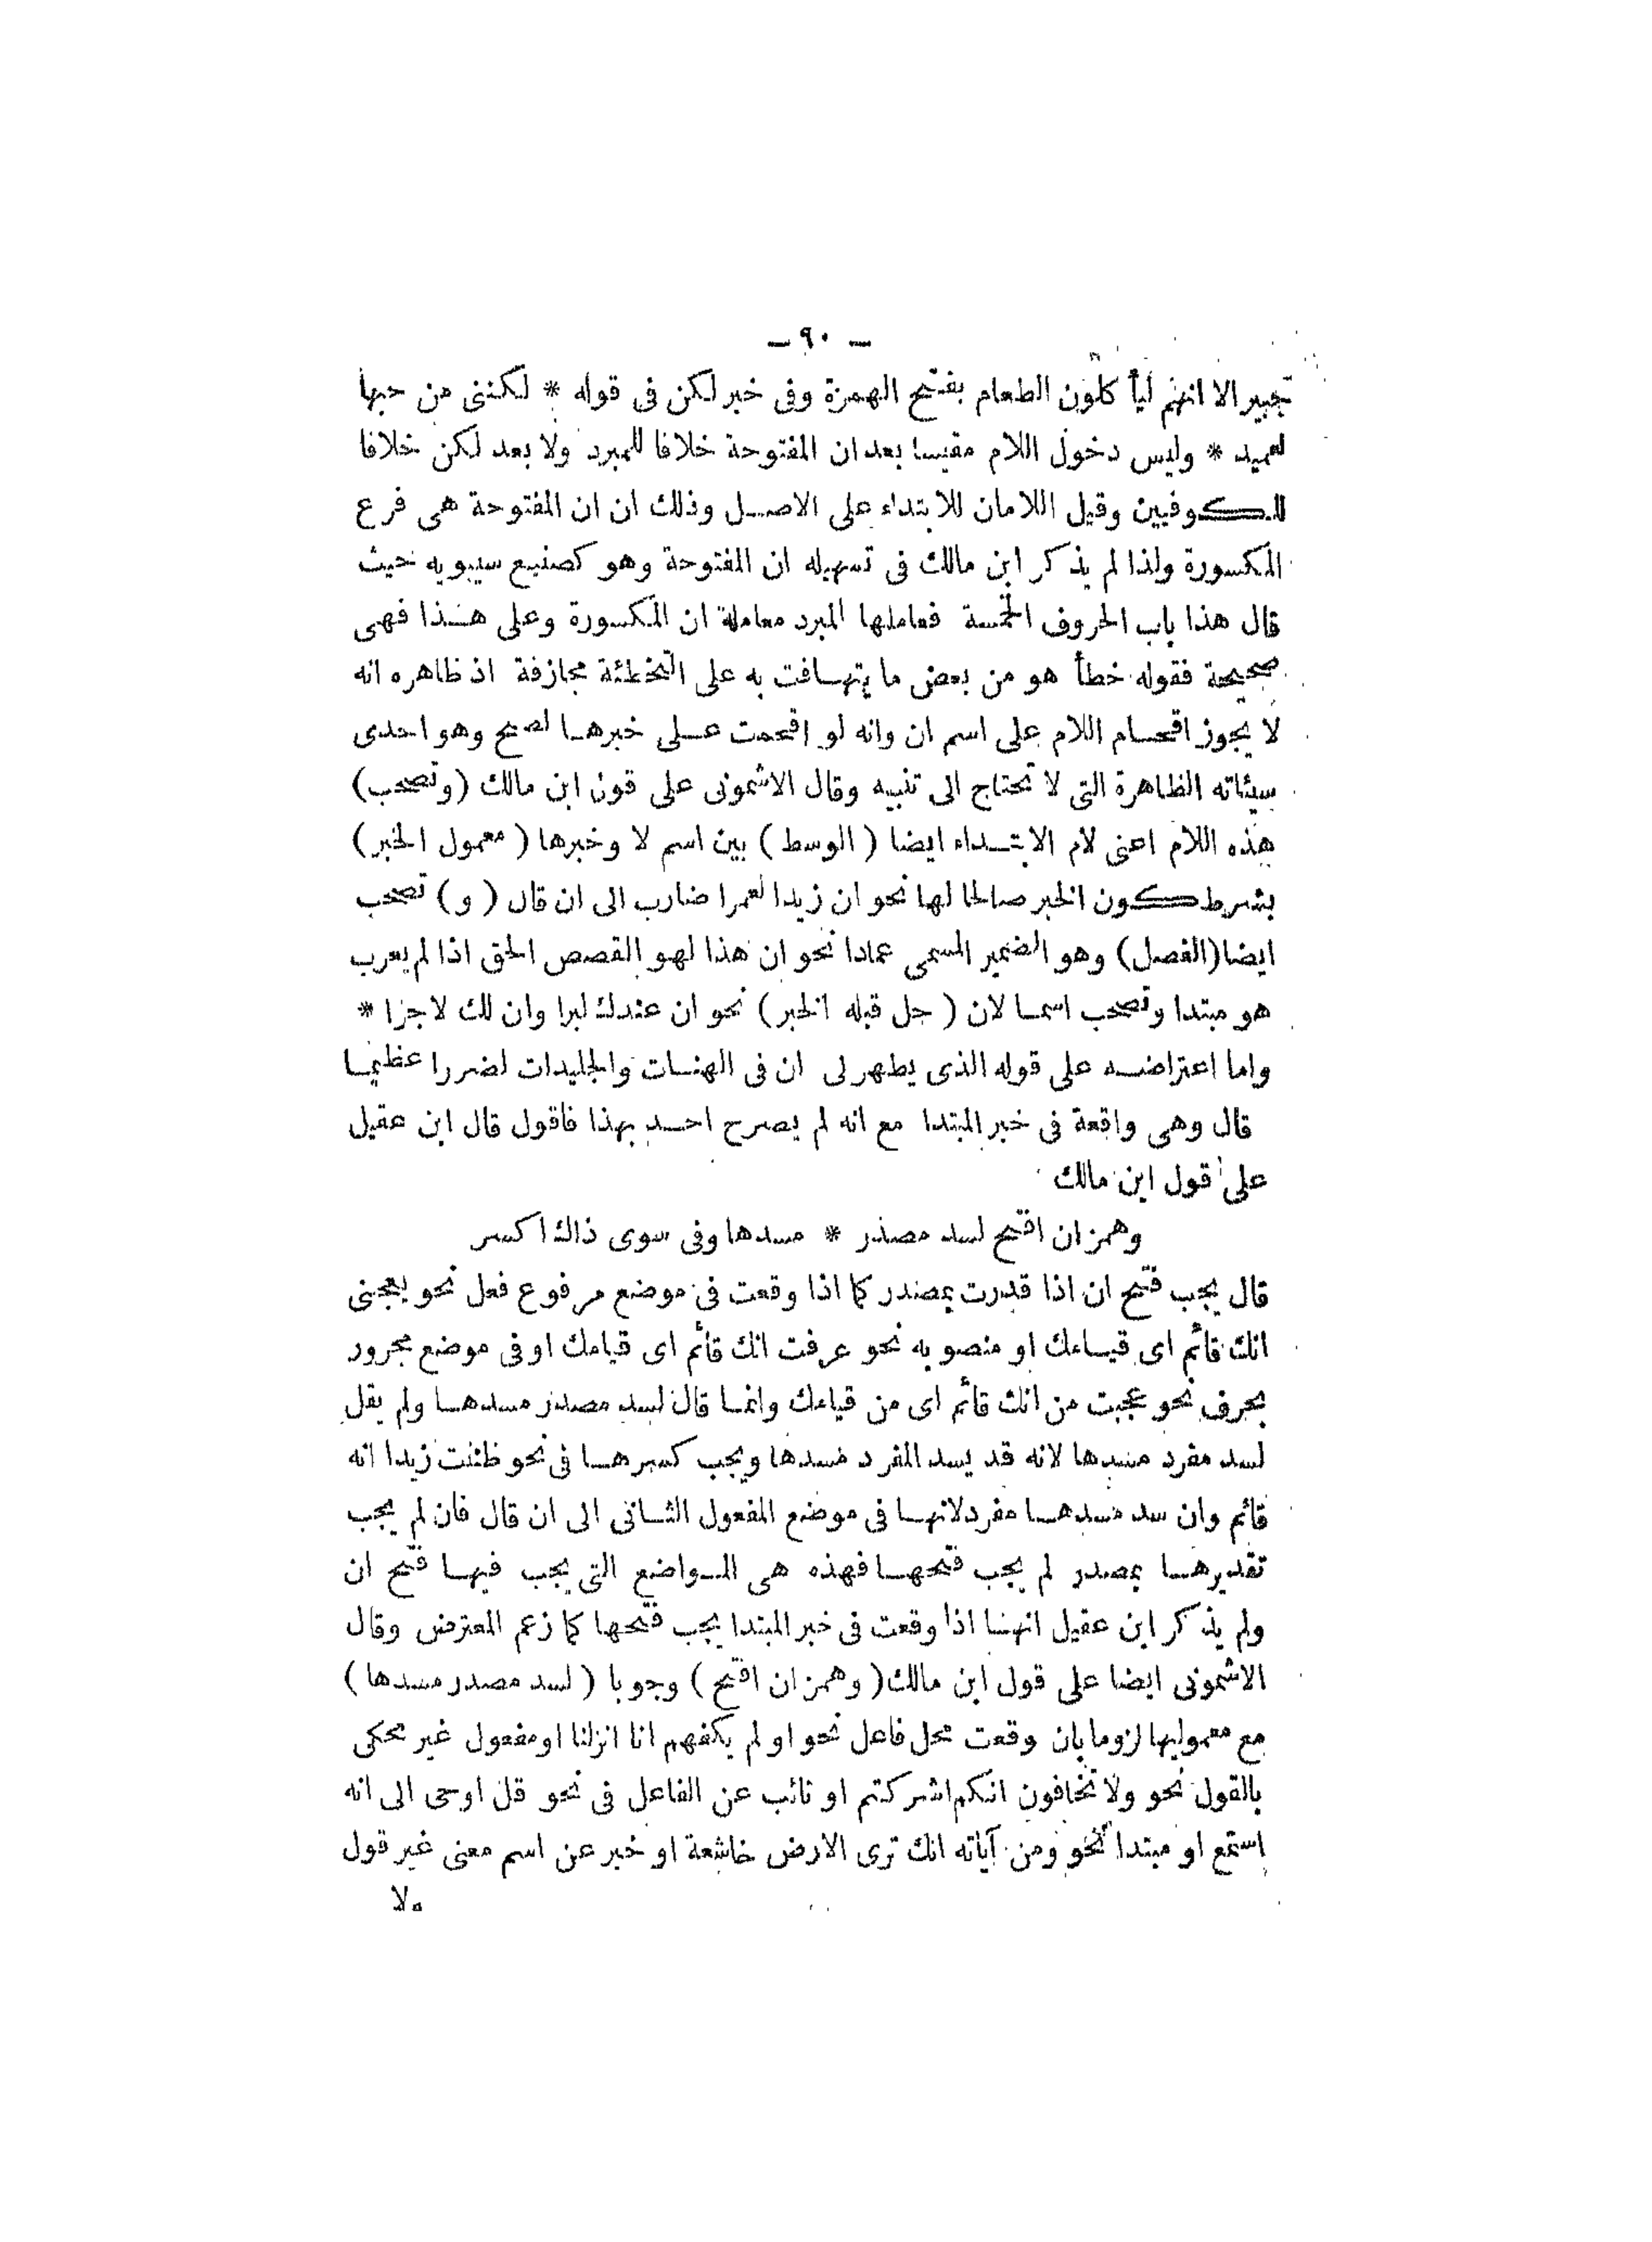 - ٩٠ -
جبير الا انهم ليأكلون الطعام بفتح الهمزة وفى خبر لكن فى قوله * لكننى من حبها
لعميد * وليس دخول اللام مقيسا بعد ان المفتوحة خلافا للمبرد ولا بعد لكن خلافا
للكوفيين وقيل اللامان للابتداء على الاصل وذلك ان ان المفتوحة هى فرع
المكسورة ولذا لم يذكر ابن مالك فى تسهيله ان المفتوحة وهو كصنيع سيبويه حيث
قال هذا باب الحروف الخمسة فعاملها المبرد معاملة ان المكسورة وعلى هذا فهى
صحيحة فقوله خطأ هو من بعض ما يتهافت به على التخطئة مجازفة اذ ظاهره انه
لا يجوز اقحام اللام على اسم ان وانه لو اقحمت على خبرها لصح وهو احدى
سيئاته الظاهرة التى لا تحتاج الى تنبيه وقال الاشمونى على قول ابن مالك (وتصحب)
هذه اللام اعنى لام الابتداء ايضا ( الوسط ) بين اسم لا وخبرها ( معمول الخبر )
بشرط كون الخبر صالحا لها نحو ان زيدا لعمرا ضارب الى ان قال ( و ) تصحب
ايضا (الفصل) وهو الضمير المسمى عمادا نحو ان هذا لهو القصص الحق اذا لم يعرب
هو مبتدا وتصحب اسما لان ( حل قبله الخبر ) نحو ان عندك لبرا وان لك لاجرا *
واما اعتراضه على قوله الذى يظهر لى ان فى الهنات والجليدات لضررا عظيما
قال وهى واقعة فى خبر المبتدا مع انه لم يصرح احد بهذا فاقول قال ابن عقيل
على قول ابن مالك
وهمز ان افتح لسد مصدر * مسدها وفى سوى ذاك اكسر
قال يجب فتح ان اذا قدرت بمصدر كما اذا وقعت فى موضع مرفوع فعل نحو يعجبنى
انك قائم اى قيامك او منصوبه نحو عرفت انك قائم اى قيامك او فى موضع مجرور
بحرف نحو عجبت من انك قائم اى من قيامك وانما قال لسد مصدر مسدها ولم يقل
لسد مفرد مسدها لانه قد يسد المفرد مسدها ويجب كسرها فى نحو ظننت زيدا انه
قائم وان سد مسدها مفرد لانها فى موضع المفعول الثانى الى ان قال فان لم يجب
تقديرها بمصدر لم يجب فتحها فهذه هى المواضع التى يجب فيها فتح ان
ولم يذكر ابن عقيل انها اذا وقعت فى خبر المبتدا يجب فتحها كما زعم المعترض وقال
الاشمونى ايضا على قول ابن مالك ( وهمز ان افتح ) وجوبا ( لسد مصدر مسدها )
مع معموليها لزوما بان وقعت محل فاعل نحو او لم يكفهم انا انزلنا او مفعول غير محكى
بالقول نحو ولا تخافون انكم اشركتم او نائب عن الفاعل فى نحو قل اوحى الى انه
استمع او مبتدا نحو ومن آياته انك ترى الارض خاشعة او خبر عن اسم معنى غير قول
ولا